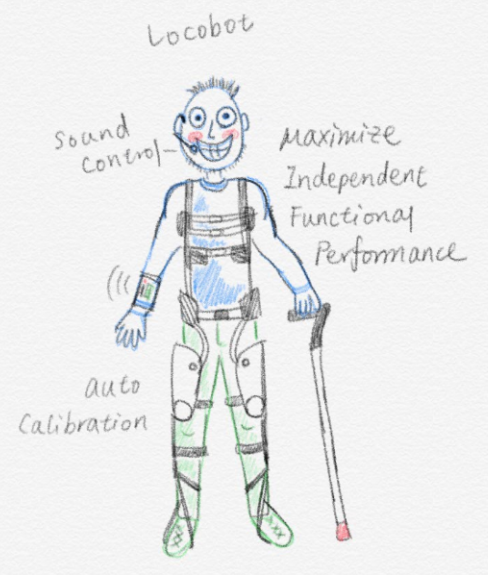 Locobot
Sound
Control
Maximize
Independent
Functional
Performance
auto
Calibration